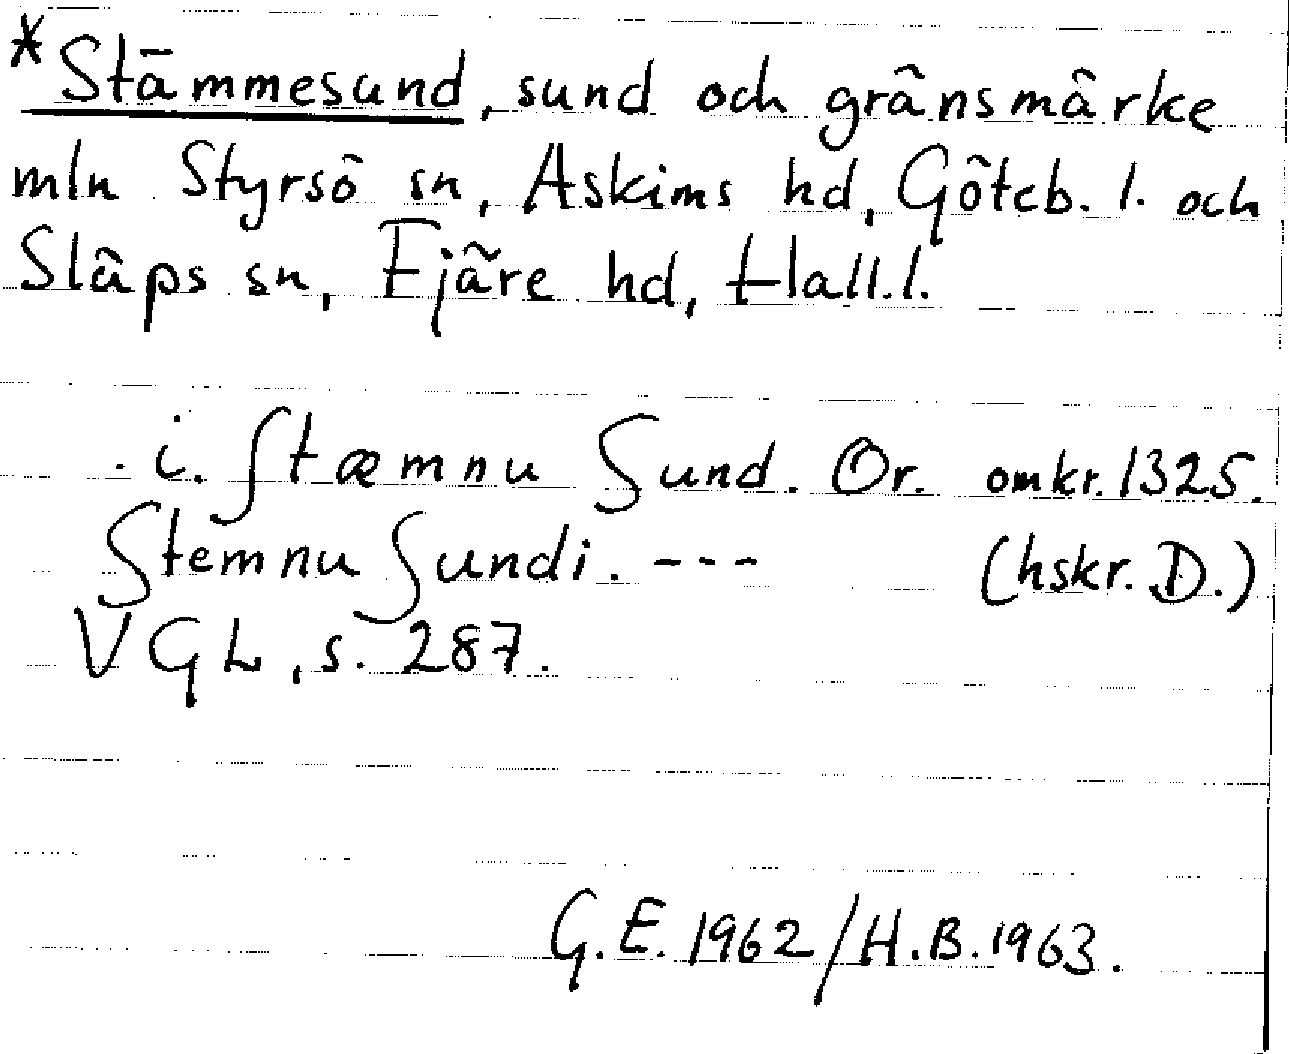 *Stämmesund, sund och gränsmärke
mln Styrsö sn, Askims hd, Göteb. l. och
Släps sn, Fjäre hd, Hall. l.
.i. ſtæmnu Sund. Or. omkr. 1325.
Stemnu Sundi. --- (hskr. D.)
VGL, s. 287.
G.E. 1962/H.B. 1963.